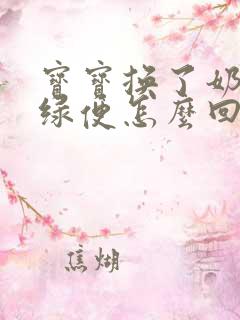 寶寶換了奶
綠便怎麼回
焦煳